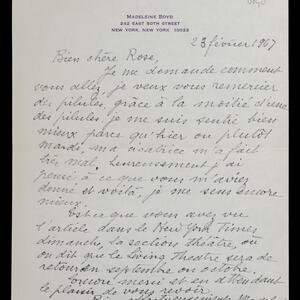 MADELEINE BOYD
242 EAST 50TH STREET
NEW YORK, NEW YORK 10022
23 février 1967
Bien chère Rose,
Je me demande comment
vous allez, je veux vous remercier
des pilules, grâce à la moitié d'une
des pilules, je me suis sentie bien
mieux parce qu'hier ou plutôt
mardi, ma cicatrice m'a fait
très mal, heureusement j'ai
pensé à ce que vous m'aviez
donné et voilà, je me sens encore
mieux.
Est-ce que vous avez vu
l'article dans le New York Times
dimanche, la section théâtre, où
on dit que le Living Theatre sera de
retour en septembre ou octobre.
Encore merci et en attendant
le plaisir de vous revoir
Bien affectueusement